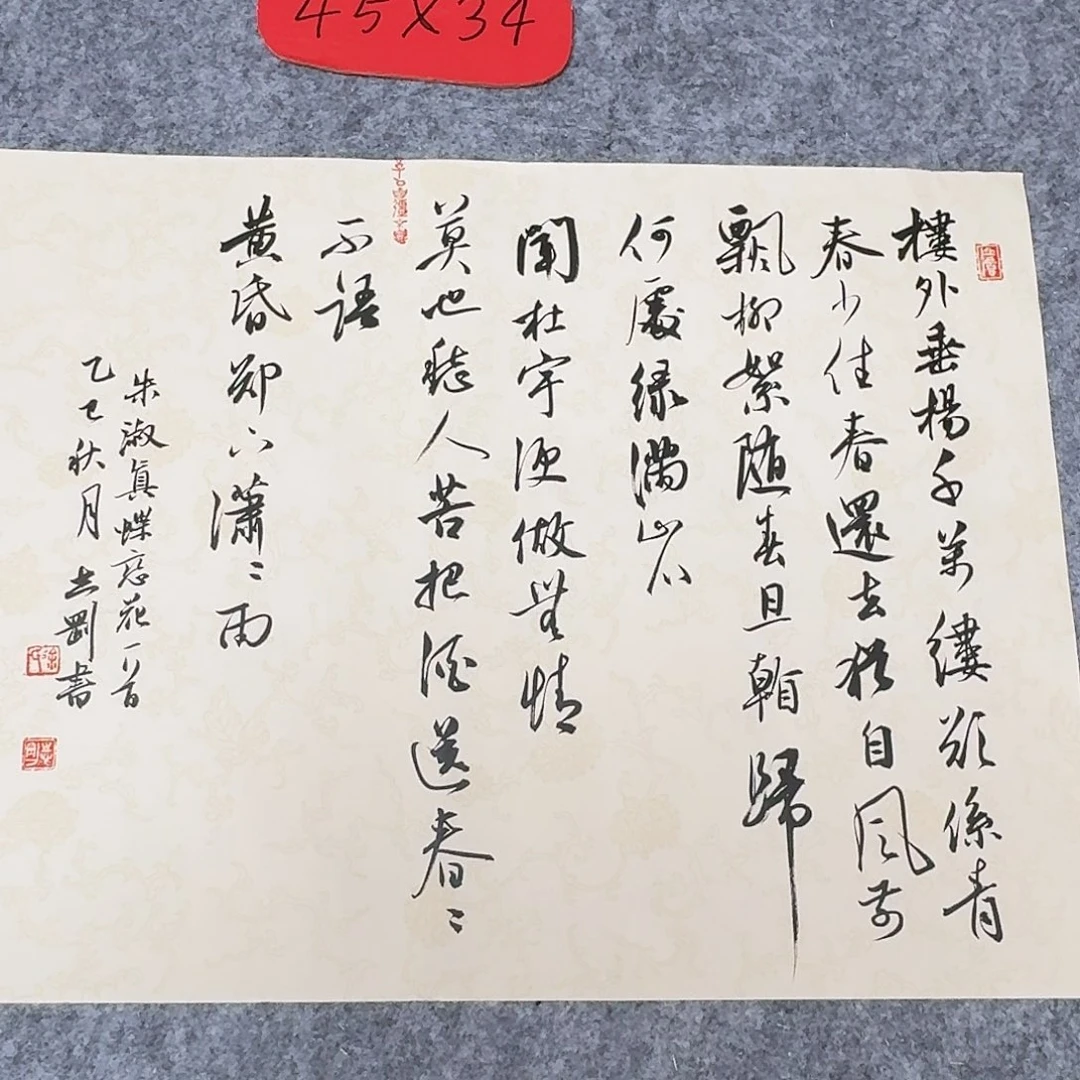 45X34
樓外垂楊千萬縷欲係青
春少住春還去猶自風前
飄柳絮随春且看歸
何處緑滿山川
聞杜宇便做無情
莫也愁人苦把酒送春〻
不語
黄昏却下瀟〻雨
朱淑真蝶恋花一首
乙巳秋月志剛書